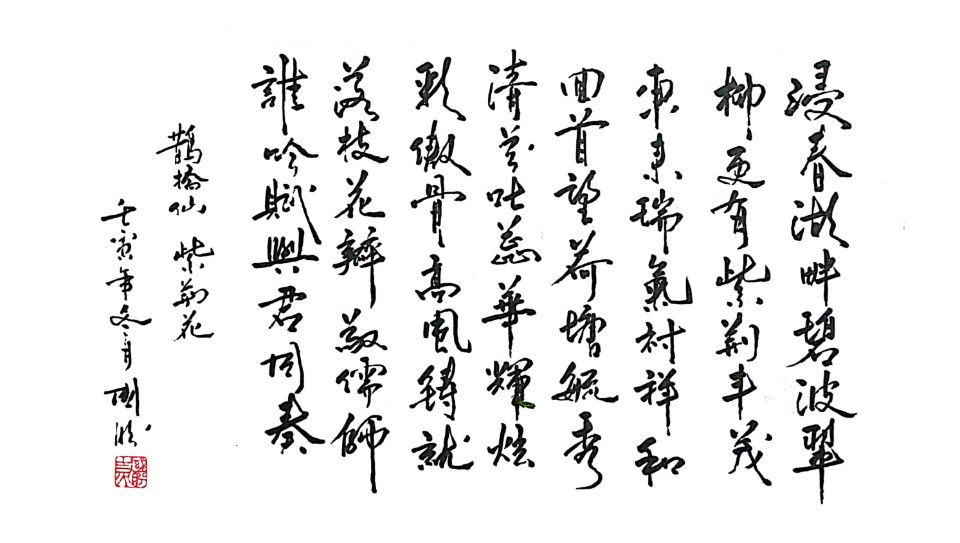 浸春湖畔碧波翠
柳更有紫荆丰茂
東来瑞氣衬祥和
回首望荷塘毓秀
清芬吐蕊華輝炫
彩傲骨高風鑄就
落枝花瓣敬儒師
誰吟賦與君同奏
鵲橋仙 紫荆花
壬寅年冬月